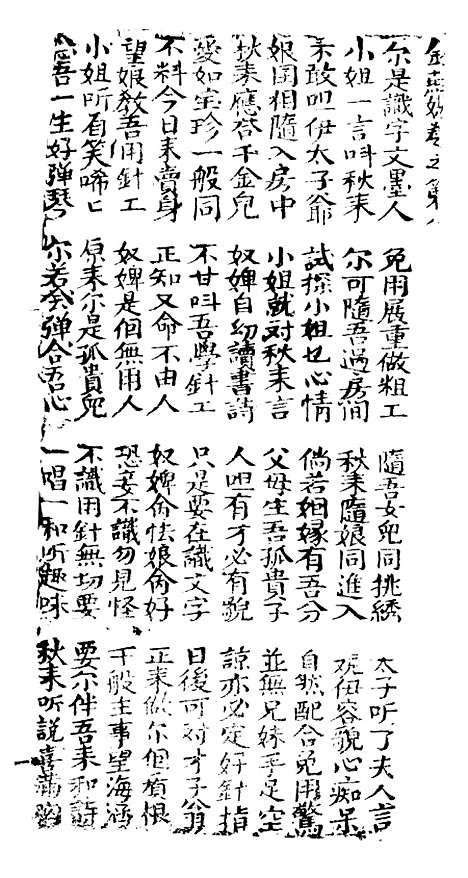 尔是識字文墨人
免用展重做粗工
隨吾女兒同挑綉
太子听了夫人言
小姐一言叫秋来
尔可隨吾過房間
秋来隨娘同進入
观伊容貌心痴呆
未敢呾伊太子爺
試探小姐乜心情
倘若姻緣有吾分
自然配合免用驚
娘囝相隨入房中
小姐就对秋来言
父母生吾孤貴子
並無兄妹手足空
秋来應答千金兒
奴婢自幼讀書詩
人呾有才必有貌
諒亦必定好針指
愛如宝珍一般同
不甘叫吾學針工
只是要在識文字
日後可对才子翁
不料今日来賣身
正知又命不由人
奴婢尙怯娘尙好
正来做尔個根
望娘教吾用針工
奴婢是個無用人
恐妾不識勿見怪
千般主事望海涵
小姐听着笑唏匕
原来尔是孤貴兒
不識用針無切要
要尔伴吾来和詩
吾一生好弹琴
尔若会弹合吾心
一唱一和听趣味
秋来听說喜滿